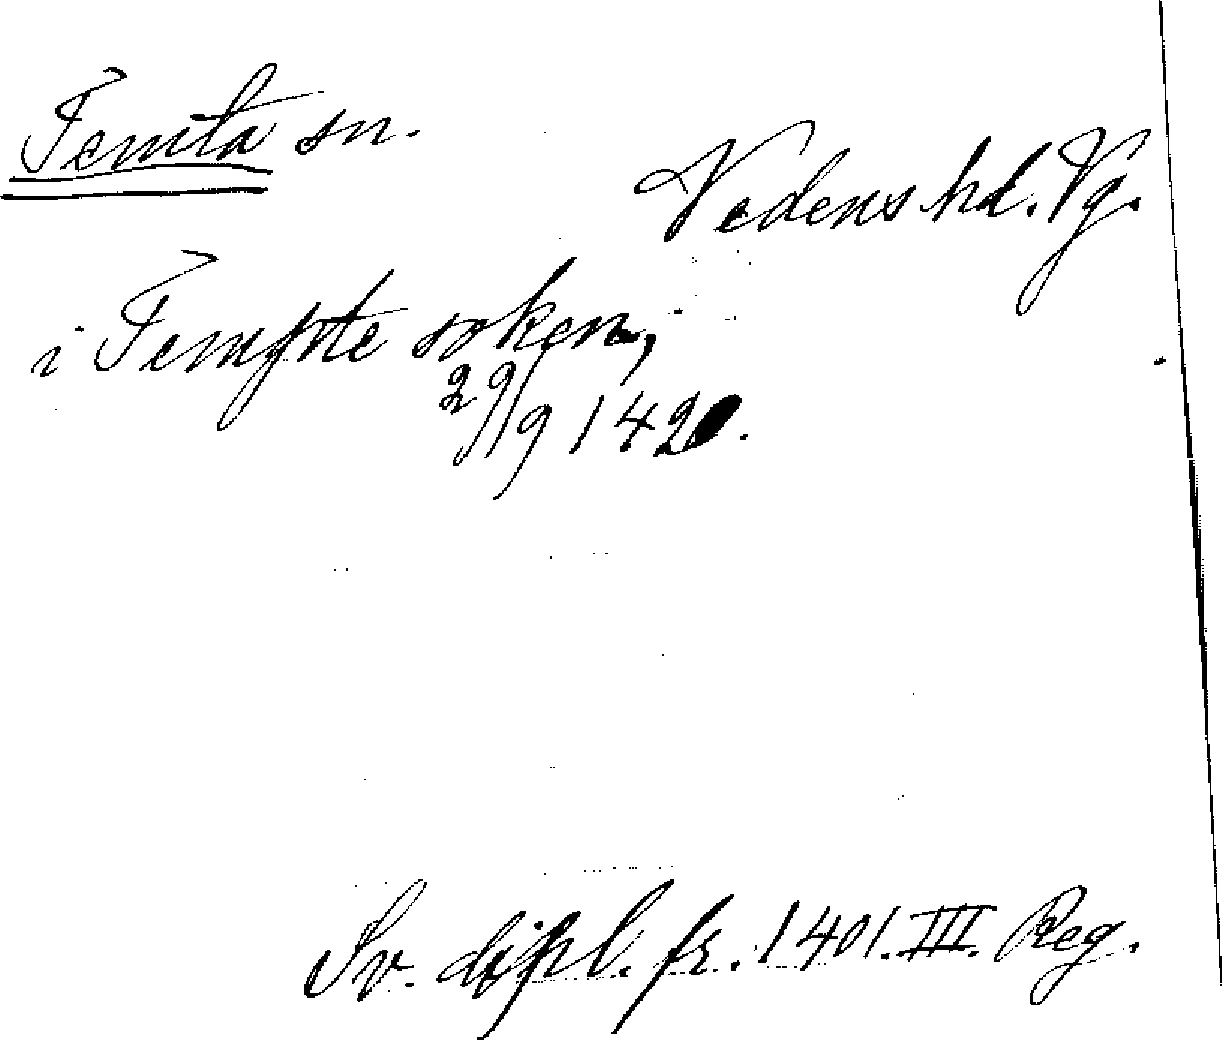 Temta sn.
Vedens hd. Vg.
i Tempte soken,
29/9 1420.
Sv. dipl. fr. 1401. III. Reg.